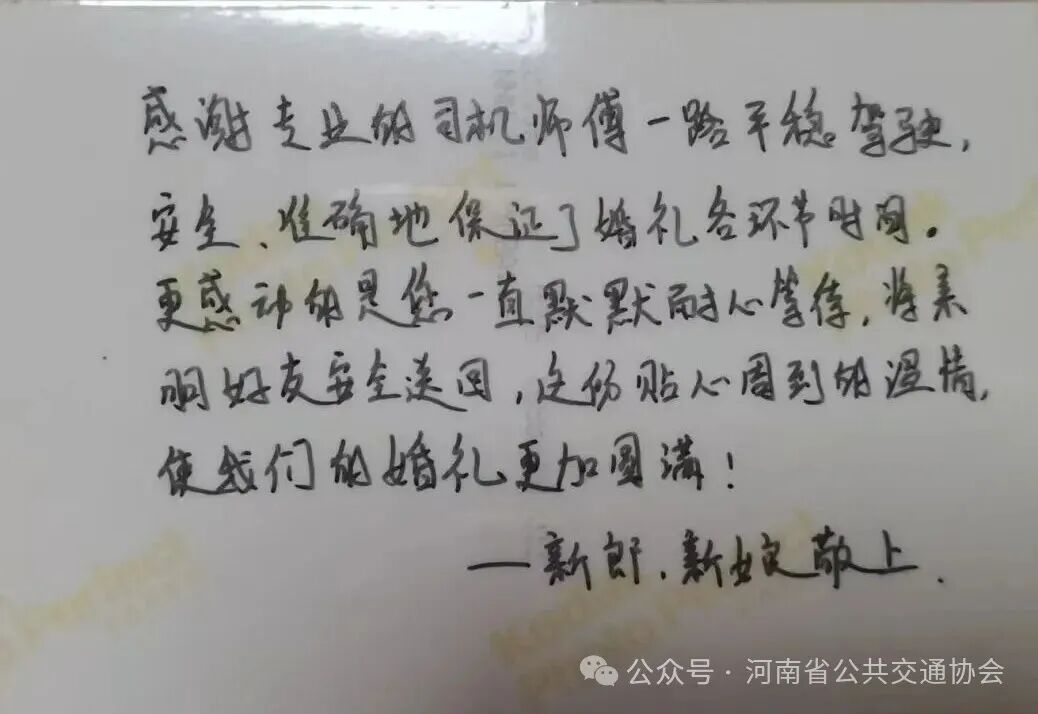 感谢专业的司机师傅一路平稳驾驶,
安全、准确地保证了婚礼各环节时间。
更感动的是您一直默默耐心等待,将亲
朋好友安全送回,这份贴心周到的温情,
使我们的婚礼更加圆满!
——新郎、新娘敬上.
公众号·河南省公共交通协会